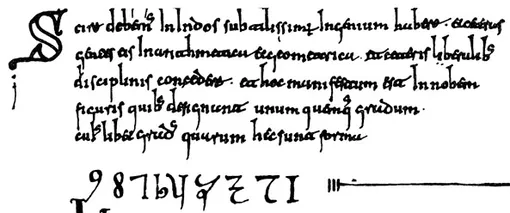 Scire debemus Indos subtilissimum Ingenium habere. et ceteras
gentes eis In arithmetica et geometrica. et ceteris liberalibus
disciplinis concedere. et hoc manifestum est In novem
figuris quibus designant unum quemque gradum.
cuiuslibet gradus quarum hec sunt forma
9 8 7 6 5 4 3 2 1